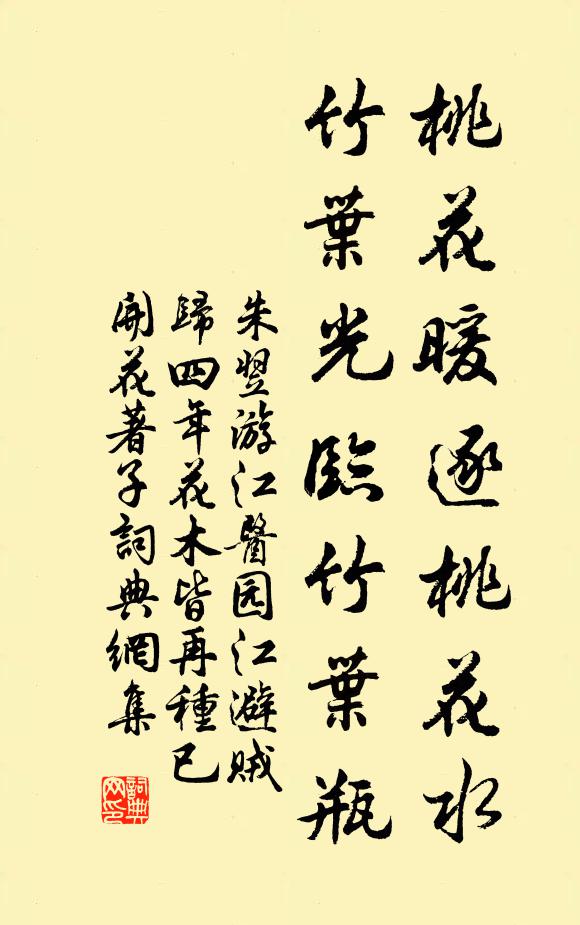 桃花暖逐桃花水
竹葉光臨竹葉瓶
朱翌游江醫园江避贼
歸四年花木皆再種已
開花著子詞典網集
詞典网印